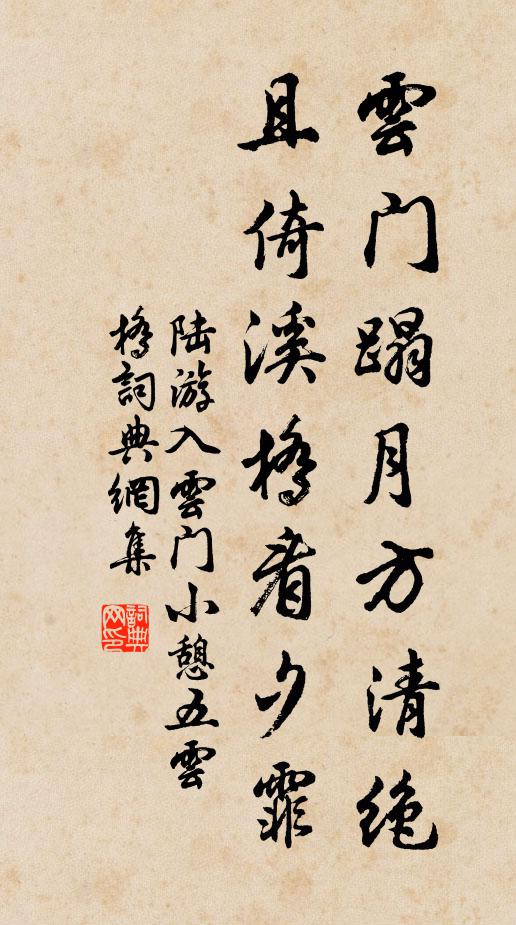 雲门蹋月方清绝
且倚溪橋看夕霏
陆游入雲门小憩五雲
橋詞典網集
詞典网印